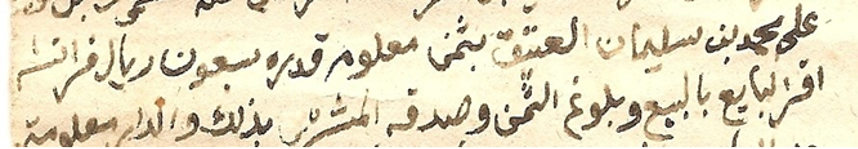 على محمد بن سليمان العتيق بثمن معلوم قدره سبعون ريال فرانسه
اقر البايع بالبيع وبلوغ الثمن وصدقه المشتري بذلك والدار معلومة